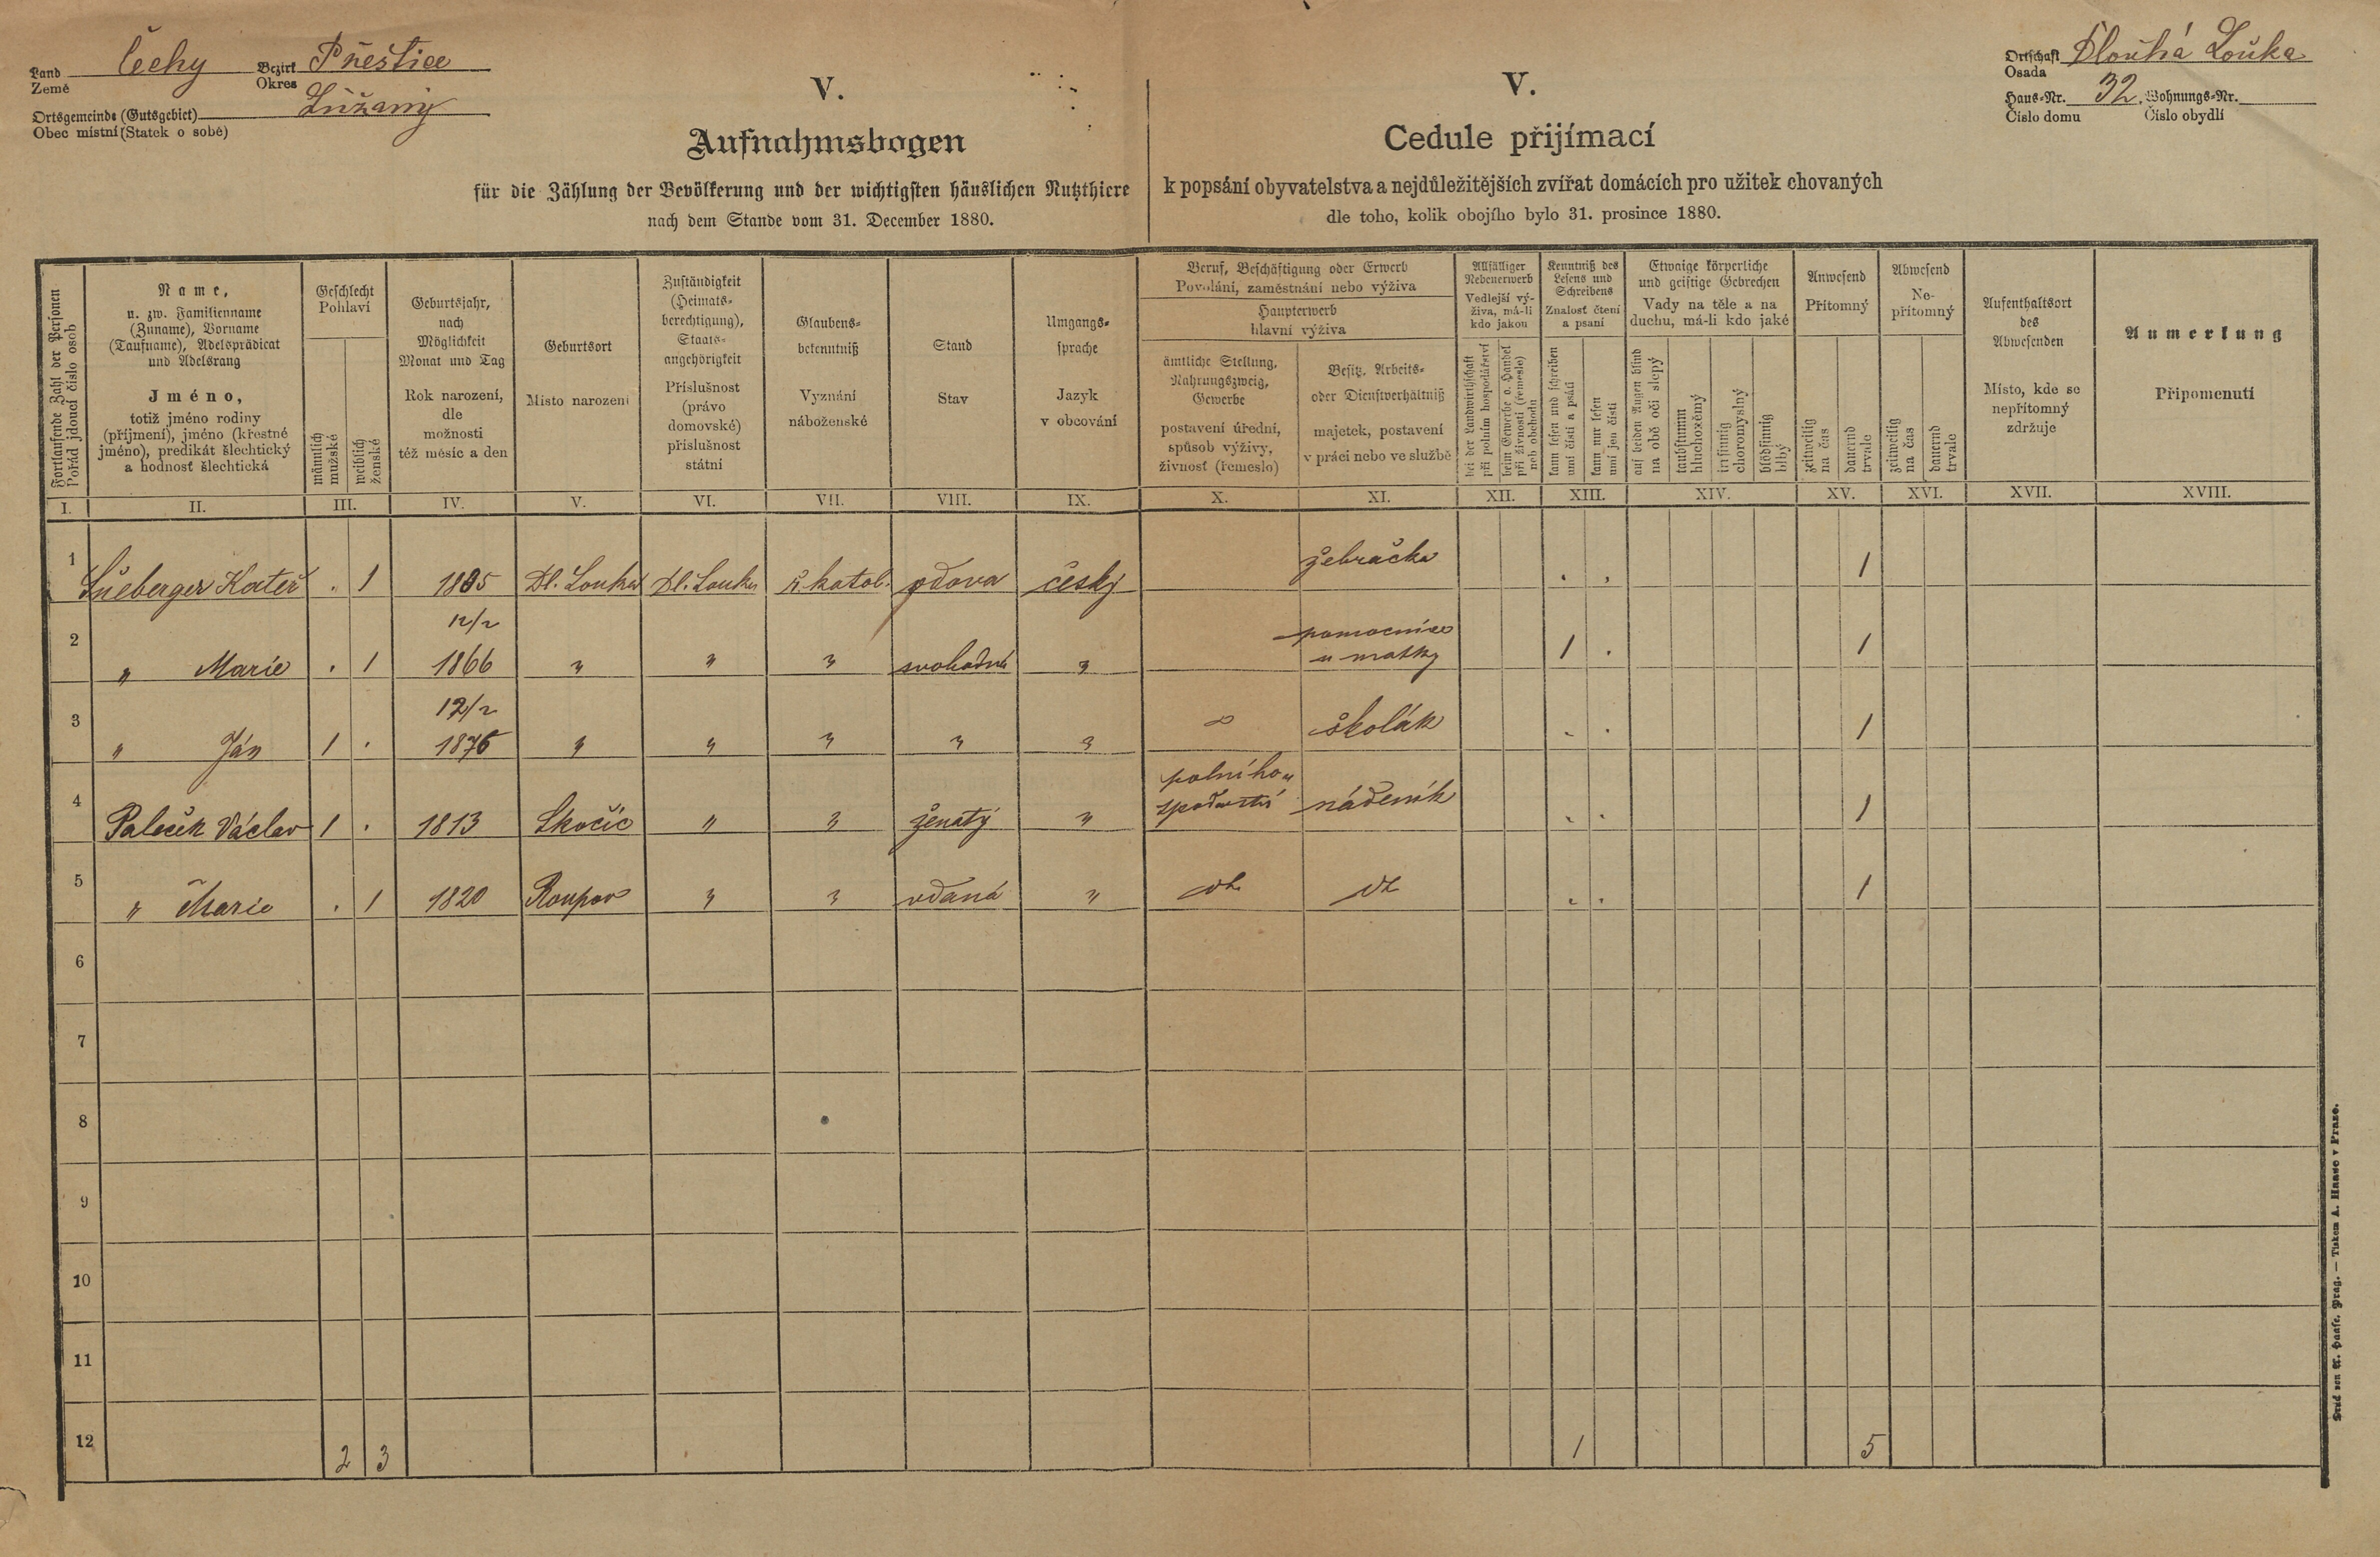 Land Čechy Bezirk Přeštice
Země Okres
Ortsgemeinde (Gutsgebiet) Lužany
Obec místní (Statek o sobě)
V.
Aufnahmsbogen
für die Zählung der Bevölkerung und der wichtigsten häuslichen Nutzthiere
nach dem Stande vom 31. December 1880.
V.
Cedule přijímací
k popsání obyvatelstva a nejdůležitějších zvířat domácích pro užitek chovaných
dle toho, kolik obojího bylo 31. prosince 1880.
Ortschaft Dlouhá Louka
Osada
Haus-Nr. 32. Wohnungs-Nr.
Číslo domu Číslo obydlí
Fortlaufende Zahl der Personen
Pořád jdoucí číslo osob
Name,
u. zw. Familienname
(Zuname), Vorname
(Taufname), Adelsprädicat
und Adelsrang
Jméno,
totiž jméno rodiny
(příjmení), jméno (křestné
jméno), predikát šlechtický
a hodnosť šlechtická
Geschlecht
Pohlaví
männlich
mužské
weiblich
ženské
Geburtsjahr,
nach
Möglichkeit
Monat und Tag
Rok narození,
dle
možnosti
též měsíc a den
Geburtsort
Místo narození
Zuständigkeit
(Heimats-
berechtigung),
Staats-
angehörigkeit
Příslušnost
(právo
domovské)
příslušnost
státní
Glaubens-
bekenntniß
Vyznání
náboženské
Stand
Stav
Umgangs-
sprache
Jazyk
v obcování
Beruf, Beschäftigung oder Erwerb
Povolání, zaměstnání nebo výživa
Haupterwerb
hlavní výživa
ämtliche Stellung,
Nahrungszweig,
Gewerbe
postavení úřední,
spůsob výživy,
živnosť (řemeslo)
Besitz, Arbeits-
oder Dienstverhältniß
majetek, postavení
v práci nebo ve službě
Allfälliger
Nebenerwerb
Vedlejší vý-
živa, má-li
kdo jakou
bei der Landwirthschaft
při polním hospodářství
beim Gewerbe o. Handel
při živnosti (řemesle)
neb obchodu
Kenntniß des
Lesens und
Schreibens
Znalosť čtení
a psaní
kann lesen und schreiben
umí čísti a psáti
kann nur lesen
umí jen čísti
Etwaige körperliche
und geistige Gebrechen
Vady na těle a na
duchu, má-li kdo jaké
auf beiden Augen blind
na obě oči slepý
taubstumm
hluchoněmý
irrsinnig
choromyslný
blödsinnig
blbý
Anwesend
Přítomný
zeitweilig
na čas
dauernd
trvale
Abwesend
Ne-
přítomný
zeitweilig
na čas
dauernd
trvale
Aufenthaltsort
des
Abwesenden
Místo, kde se
nepřítomný
zdržuje
Anmerkung
Připomenutí
I. II. III. IV. V. VI. VII. VIII. IX. X. XI. XII. XIII. XIV. XV. XVI. XVII. XVIII.
1 Kateř . 1 Dl. Louka Dl. Louka ř. katol. vdova český žebračka . . 1
2 " Marie . 1 12/2 1866 " " " svobodná " pomocnice u matky 1 . 1
3 " Ján 1 . 12/2 1876 " " " " " školák . . 1
4 Paleček Václav 1 . 1813 Skočic " " ženatý " polního hospodářství nádeník . . 1
5 " Marie . 1 1820 Roupov " " vdaná " dt. dt. . . 1
6
7
8
9
10
11
12 2 3 1 5
Druck von A. Haase, Prag. — Tiskem A. Haase v Praze.